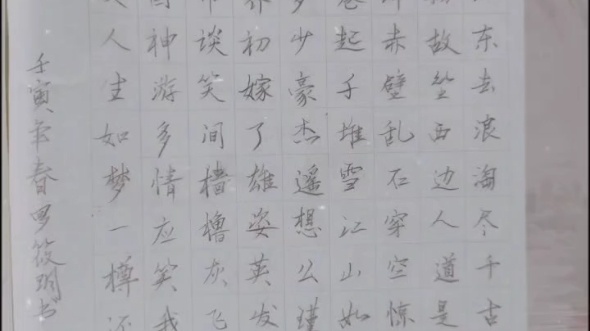 东去浪淘尽千古
故垒西边人道是
赤壁乱石穿空惊
卷起千堆雪江山如
多少豪杰遥想公瑾
初嫁了雄姿英发
谈笑间樯橹灰飞
神游多情应笑我
人生如梦一樽还
壬寅年春罗筱明书